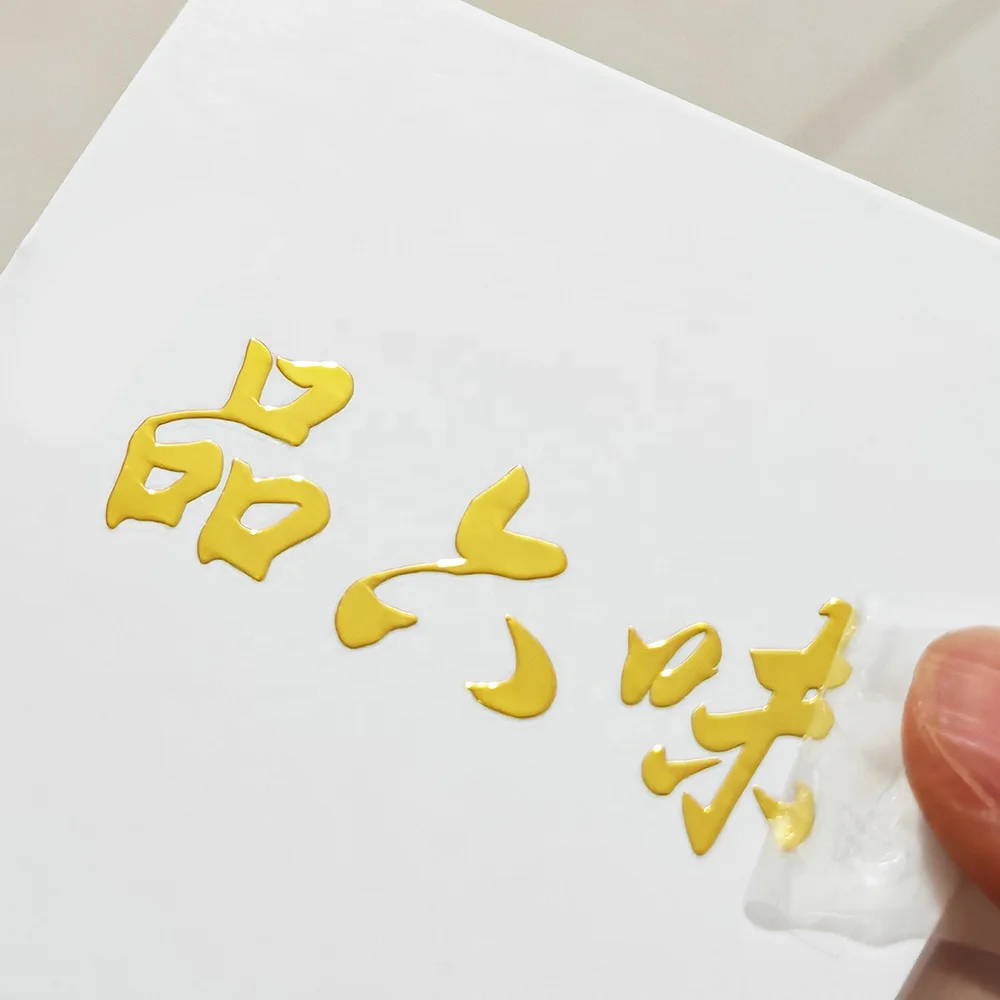 品六味